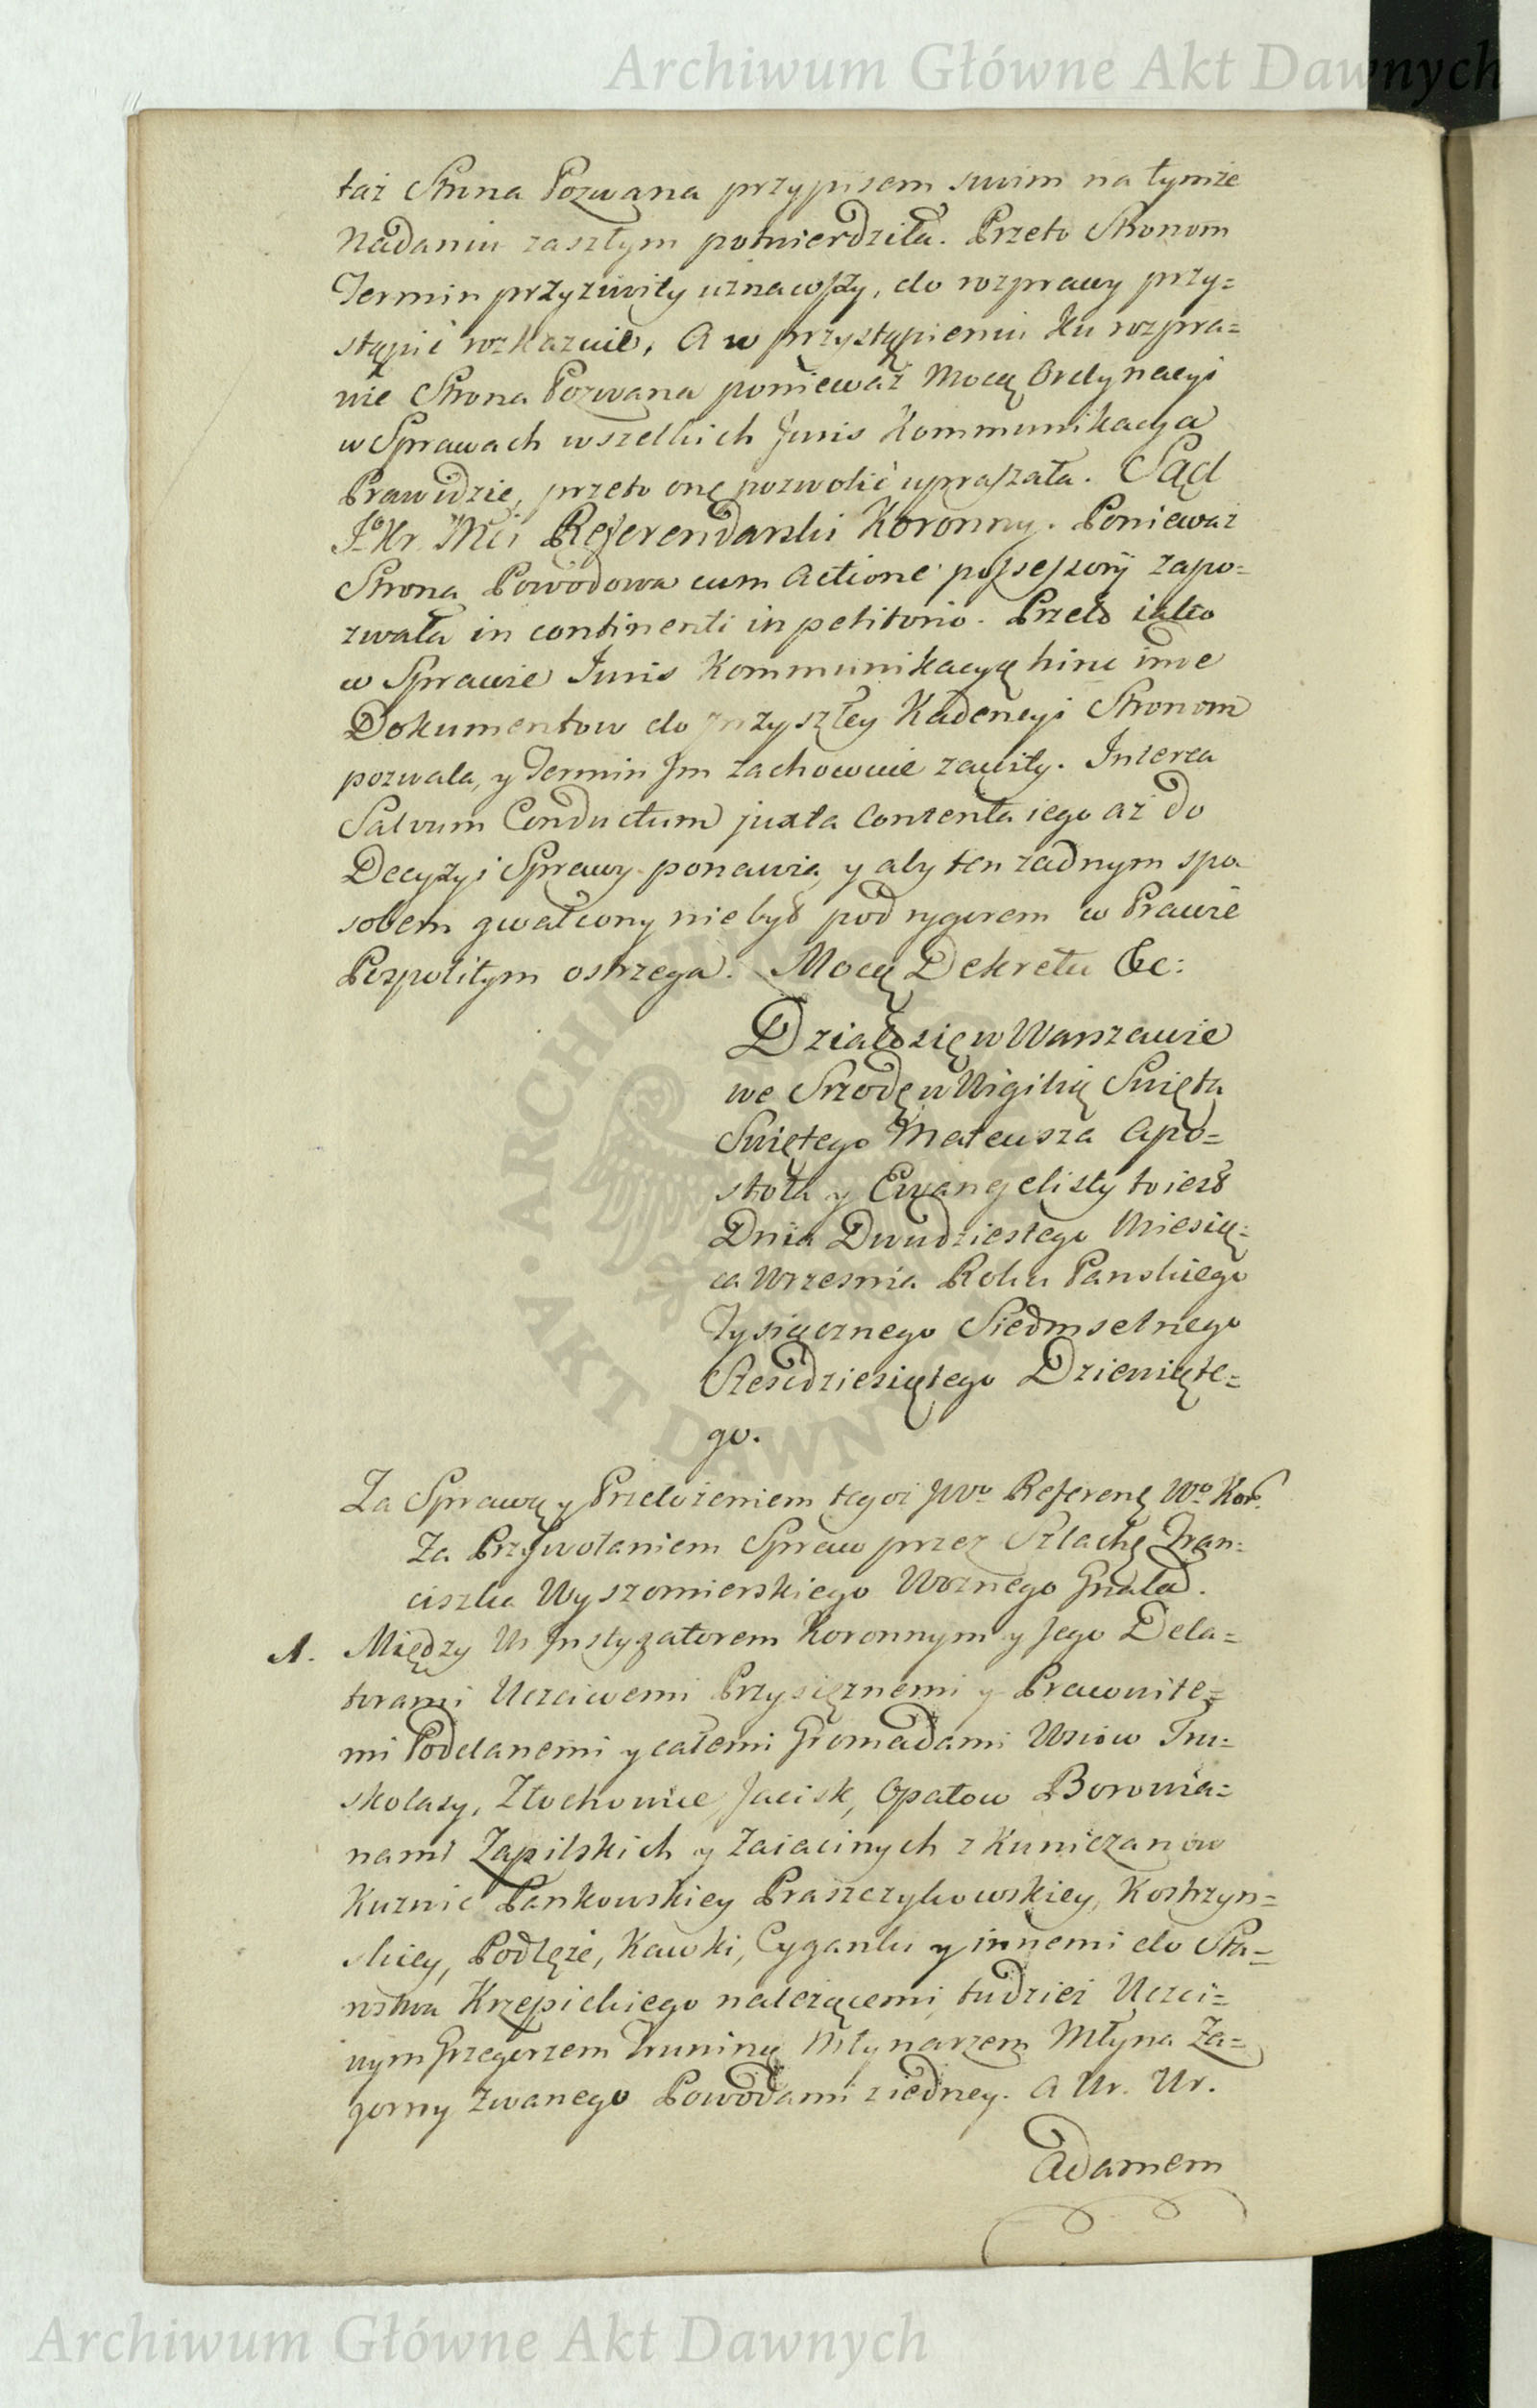 Archiwum Główne Akt Dawnych
taż Strona Pozwana przypisem swim na tymże
Nadaniu zaszłym potwierdziła. Przeto Stronom
Termin przyzwity uznawszy, do rozprawy przy=
stąpić rozkazuie, A w przystąpieniu ku rozpra=
wie Strona Pozwana ponieważ Mocą Ordynacyi
w Sprawach wszelkich Juris Kommunikacya
Prawidzie, przeto onę pozwolić upraszała. Sąd
J. Kr. Mci Referendarski Koronny. Ponieważ
Strona Powodowa cum Actione possessorij zapo=
zwała in continenti in petitorio. Przeto iako
w Sprawie Juris Kommunikacyą hinc inde
Dokumentow do przyszłey Kadencyi Stronom
pozwala, y Termin Jm zachowuie zawity. Interea
Salvum Conductum juxta Contenta iego aż do
Decyzyi Sprawy ponawia, y aby ten żadnym spo
sobem gwałcony niebył pod rygorem w Prawie
Pospolitym ostrzega. Mocą Dekretu &c:
Działo się w Warszawie
we Srzodę w Wigilią Swięta
Swiętego Mateusza Apo=
stoła y Ewangelisty to iest
Dnia Dwudziestego Miesią=
ca Wrzesnia Roku Panskiego
Tysiącznego Siedmsetnego
Szescdziesiątego Dziewięte=
go.
Za Sprawą y Przełożeniem tegoż JWo Referenę Wo Kor.
Za Przywołaniem Spraw przez Szlachę Fran=
ciszka Wyszomierskiego Woznego Gnała.
1. Między Ur Instygatorem Koronnym y Jego Dela=
torami Uczciwemi Przysiężnemi y Prawnite=
mi Poddanemi y całemi Gromadami Wsiow Tru=
skolasy, Złochowice Jacisk, Opatow Borowia=
nami Zapilskich y Zaiacinych z Kuniczanow
Kuznic Pankowskiey Praszczykowskiey, Kostrzyn=
skiey, Podłęże, Kawki, Cyganki y innemi do Sta=
rostwa Krzepickiego należącemi, tudzież Uczci=
wym Grzegorzem Truniną Młynarzem Młyna Za=
gorny zwanego Powodami z iedney. A Ur. Ur.
Adamem
ARCHIWUM GŁÓWNE
AKT DAWNYCH
Archiwum Główne Akt Dawnych